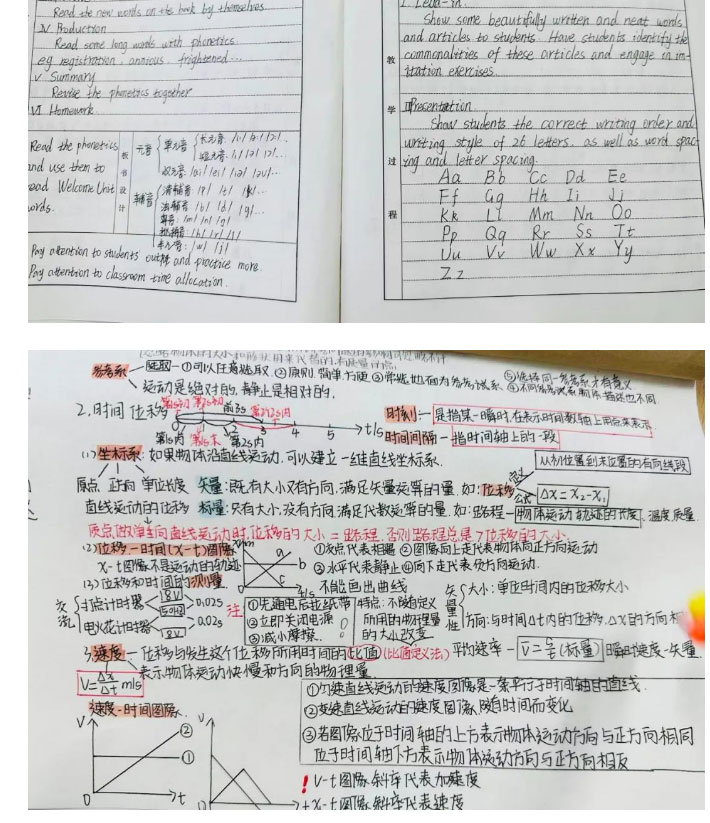 Read the new words on the book by themselves.
IV Production
Read some long words with phonetics
eg registration, annious, frightened...
V Summary
Revise the phonetics together
VI Homework
Read the phonetics
and use them to
read Welcome Unit
words.
板书设计
元音
单元音
长元音
短元音
双元音
辅音
清辅音 /p/ /t/ /k/...
浊辅音 /b/ /d/ /g/...
鼻音: /m/ /n/ /ŋ/
半元音: /w/ /j/
Pay attention to students' output and practice more.
Pay attention to classroom time allocation.
I. Lead-in
Show some beautifully written and neat words
and articles to students. Have students identify the
commonalities of these articles and engage in im-
itation exercises.
教学过程
II Presentation
Show students the correct writing order and
writing style of 26 letters, as well as word spac-
ing and letter spacing.
Aa Bb Cc Dd Ee
Ff Gg Hh Ii Jj
Kk Ll Mm Nn Oo
Pp Qq Rr Ss Tt
Uu Vv Ww Xx Yy
Zz
参考系
选取—①可以任意选取 ②原则: 简单.方便
⑤选择同一参考系才有意义
运动是绝对的, 静止是相对的.
2.时间 位移
第1s初 第2s初 前3s 第2个2s内
0 1 2 3 4 5 t/s
第1s内 第1s末 第2s内
时刻:—是指某一瞬时,在表示时间数轴上用点来表示
时间间隔—指时间轴上的一段
(1)坐标系: 如果物体沿直线运动,可以建立一维直线坐标系.
从初位置到末位置的有向线段
原点 正向 单位长度 矢量:既有大小又有方向,满足矢量运算的量.如:位移
定义
公式
Δx=x₂-x₁
直线运动的位移 标量:只有大小,没有方向,满足代数运算的量.如:路程—物体运动轨迹的长度、温度.质量
质点做单向直线运动时,位移的大小=路程,否则路程总是>位移的大小.
(2)位移-时间(x-t)图像
x-t图像不是运动的轨迹
x/m
a
b
c
0 t/s
①交点代表相遇 ②图像向上走代表物体向正方向运动
③水平代表静止 ④向下走代表负方向运动.
不能画出曲线
(3)位移和时间的测量
交流
打点计时器
8V
50Hz
0.02s
电火花计时器
8V
0.02s
注
①先通电后拉纸带
②立即关闭电源
③减小摩擦.
特点: 不随定义
所用的物理量
的大小改变
矢量性
大小:单位时间内的位移大小
方向:与时间Δt内的位移,Δx的方向相
3.速度—位移与发生这个位移所用时间的比值(比值定义法)
平均速率—v=s/t(标量) 瞬时速度-矢量.
表示物体运动快慢和方向的物理量
V=Δx/Δt m/s
速度-时间图像.
V
②
①
0 t
V
0 t
①匀速直线运动的速度图像是一条平行于时间轴的直线.
②变速直线运动的速度图像随时间而变化
③若图像位于时间轴的上方表示物体运动方向与正方向相同
位于时间轴下方表示物体运动方向与正方向相反
! V-t图像斜率代表加速度
x-t图像斜率代表速度